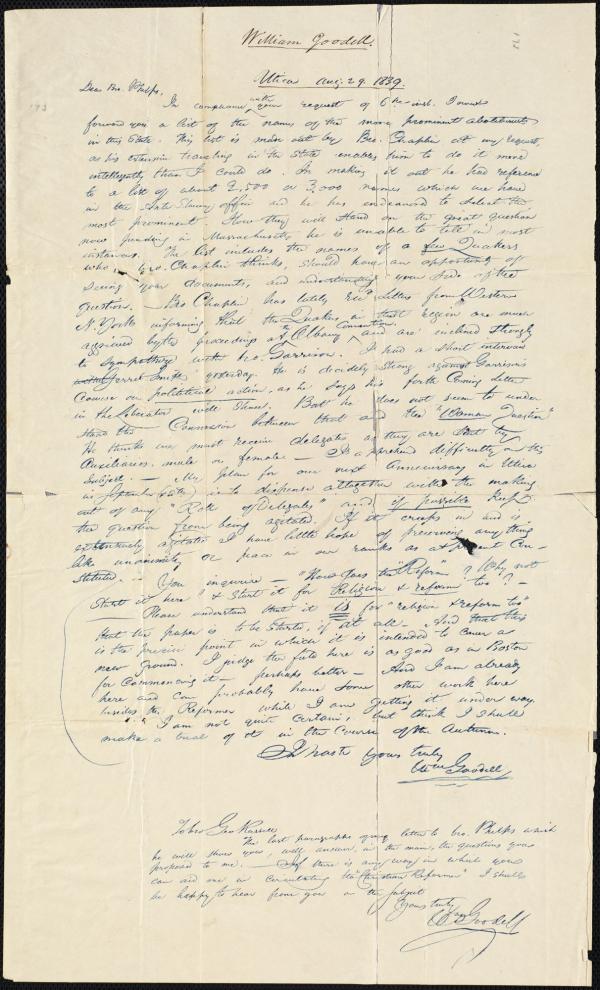 William Goodell.
Utica Aug. 29. 1839.
Dear Bro. Phelps,
In compliance with your request of 6th inst. I now
forward you a list of the names of the more prominent abolitionists
in this State. This list is made out by Bro. Chaplin at my request,
as his extensive traveling in the State enables him to do it more
intelligently than I could do. In making it out he had reference
to a list of about 2,500 or 3,000 names which we have
in the Anti Slavery office and he has endeavored to select the
most prominent. How they will stand on the great question
now pending in Massachusetts he is unable to tell in most
instances. The list includes the names of a few Quakers
who, Bro. Chaplin thinks, should have an opportunity of
seeing your documents, and understanding your side of the
question. Bro Chaplin has lately recd letters from Western
N. York informing that the Quakers in that region are much
aggrieved by the proceedings at the Albany Convention and are inclined strongly
to sympathize with bro. Garrison. I had a short interview
with Gerrit Smith yesterday. He is decidedly strong against Garrison's
course on political action, as he says his forth coming letter
in the Liberator will shew. But he does not seem to under
stand the connexion between that and the "Woman Question"
He thinks we must receive delegates as they are sent by
Auxiliaries, male or female — I apprehend difficulty on this
subject. — My plan for our next Anniversary in Utica
in September is to dispense altogether with the making
out of any "Roll of Delegates" and if possible keep
the question from being agitated. If it creeps in and is
extensively agitated I have little hope of preserving any thing
like unanimity or peace in our ranks as at present Con-
stituted. —
You inquire — "How goes the "Reform"? Why not
start it here" & start it for Religion & reform too? —
Please understand that it is for "religion & reform too"
that the paper is to be started, if at all — And that this
is the precise point in which it is intended to cover a
new ground. I judge the field here is as good as in Boston
for commencing it — perhaps better — And I am already
here and can probably have some other work here
besides the Reformer while I am getting it under way.
I am not quite certain, but think I shall
make a trial of it in the course of the Autumn.
In haste yours truly
Wm Goodell
To bro Geo Russell
The last paragraphs of my letter to bro. Phelps which
he will show you, will answer, in the main, the questions you
proposed to me. — If there is any way in which you
can aid me in circulating the "Christian Reformer" I shall
be happy to hear from you on the subject
Yours truly
Wm Goodell